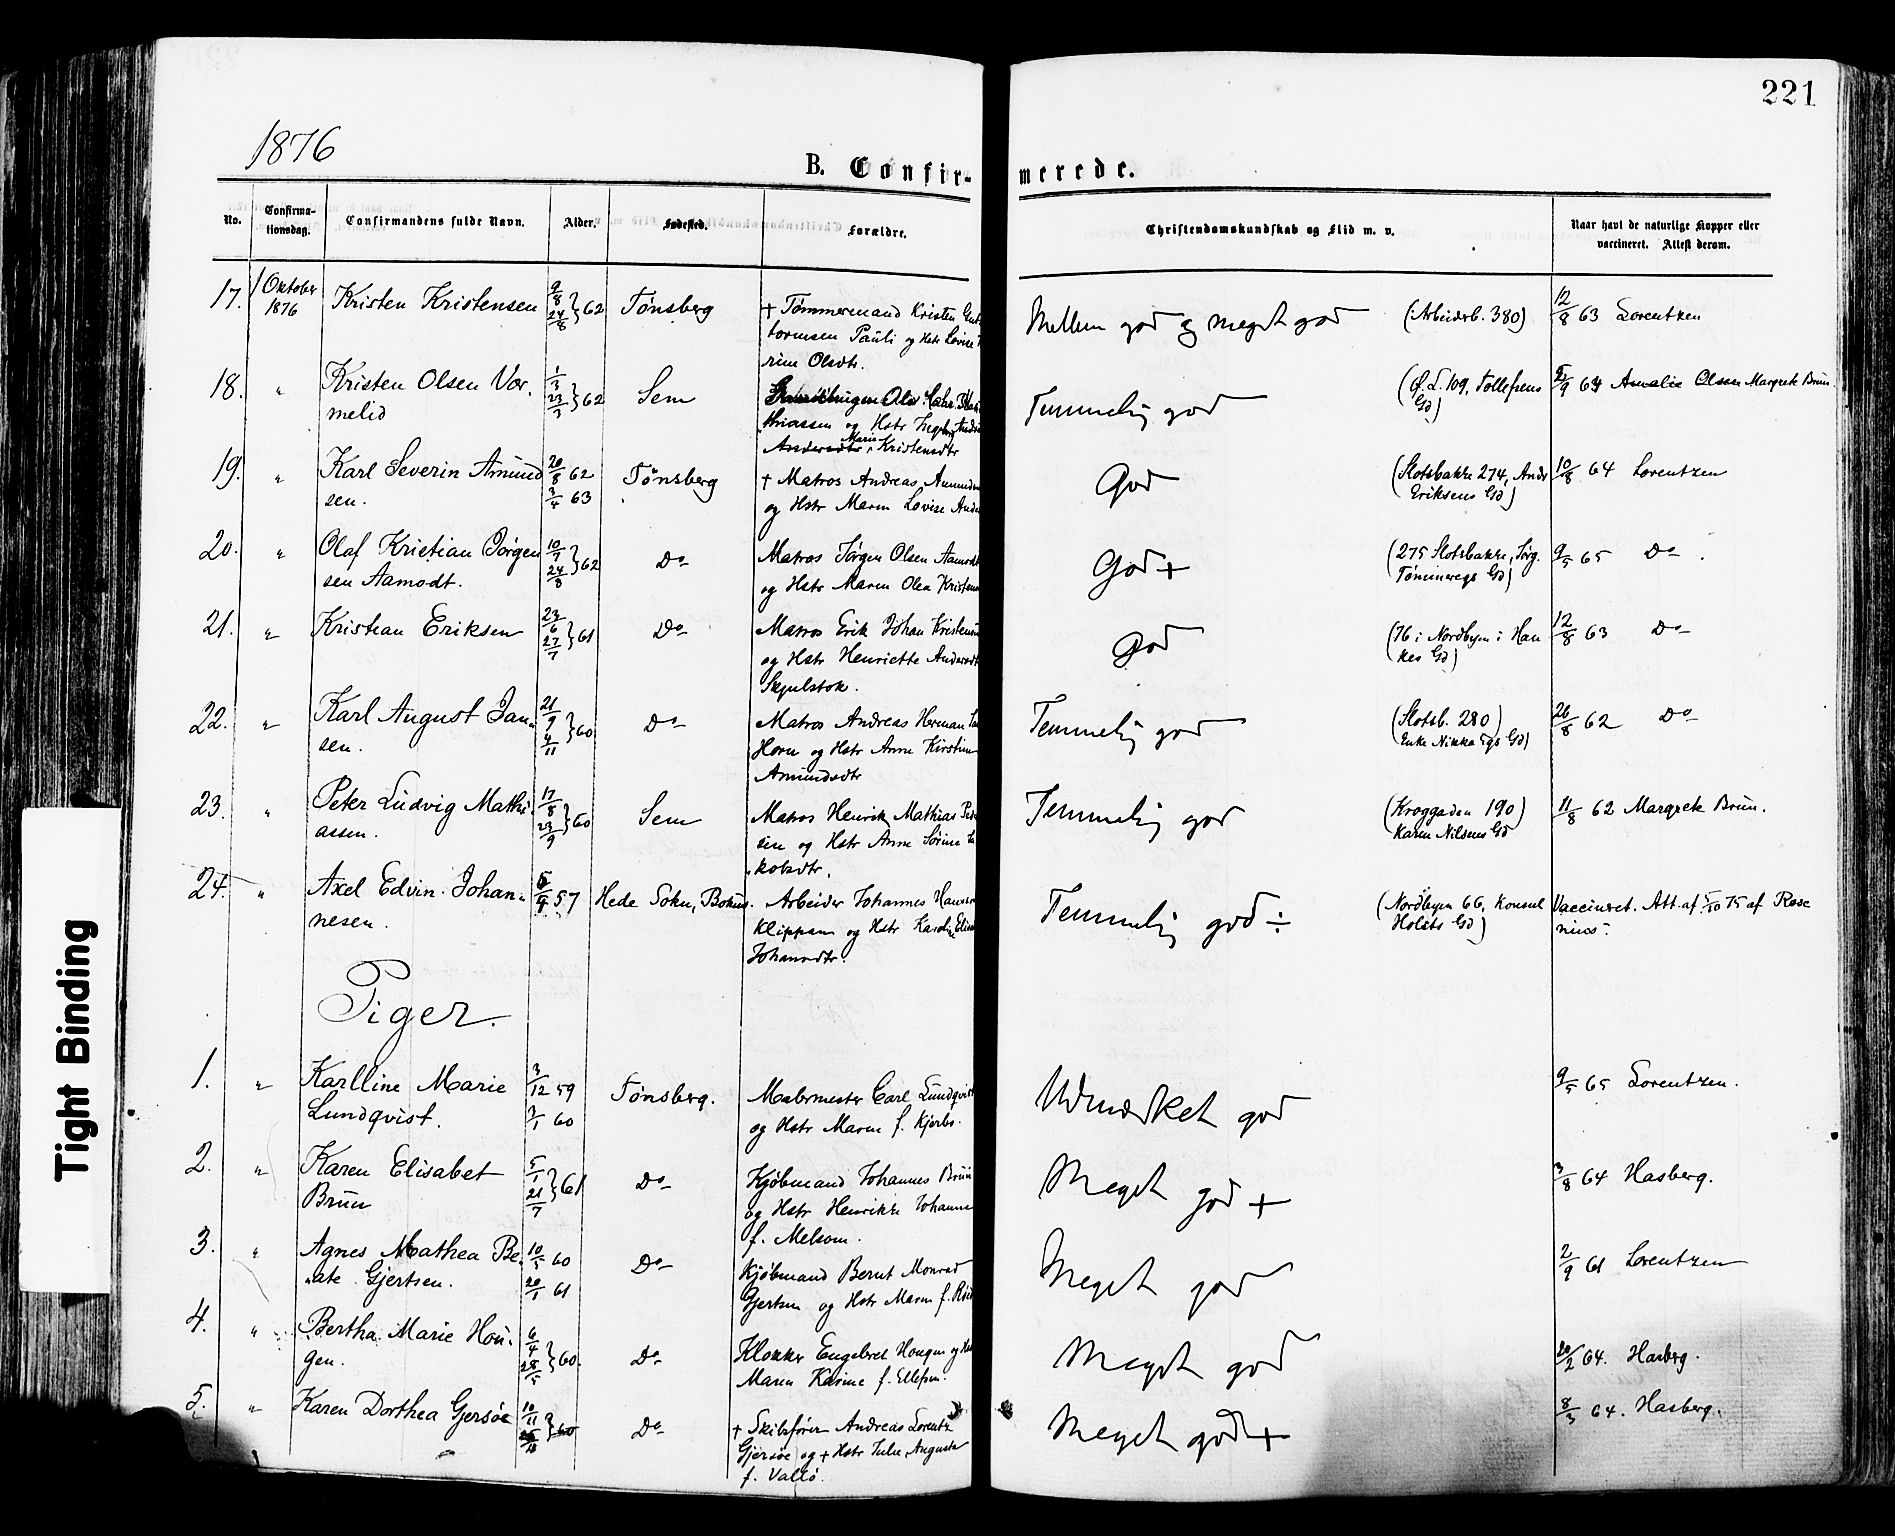 221
1876
B. Confir-
merede.
No.
Confirma-
tionsdag.
Confirmandens fulde Navn.
Alder.
Fødested.
Forældre.
Christendomskundskab og Flid m. v.
Naar havt de naturlige Kopper eller
vaccineret. Attest derom.
17. 1 Oktober 1876 Kristen Kristensen 9/8 24/8 } 62 Tønsberg
+ Tømmermand Kristen
tormsen Pauli og Hstr Lovise
rine Olsdtr.
Mellem god og meget god (Arbeiderb. 380) 12/8 63 Lorentzen
18. " Kristen Olsen Vor-
melid 1/3 23/3 } 62 Sem
og Hstr Ingeborg
Marie Kristensdtr
Temmelig god (Ø. L. 109, Tollefsens
Gd) 9 64 Amalie Olsen Margrete Brun.
19. " Karl Severin Amund
sen. 20/8 62 3/4 63 Tønsberg
+ Matros Andreas Amundsen
og Hstr Maren Lovise Ander
God (Slotsbakke 274, Andr
Eriksens Gd) 10/8 64 Lorentzen
20. " Olaf Kristian Jørgen
sen Aamodt. 10/7 24/8 } 62 Do
Matros Jørgen Olsen Aamodt
og Hstr Maren Olea Kristens
God + (275 Slotsbakke, Jørg.
Gd) 9/5 65 Do.
21. " Kristian Eriksen 23/6 27/7 } 61 Do
Matros Erik Johan Kristensen
og Hstr Henriette Andersdt
Skjelstok.
God (76 i Nordbyen i Han
kes Gd) 12/8 63 Do
22. " Karl August Jan-
sen. 21/9 4/11 } 60 Do
Matros Andreas Herman
Horn og Hstr Anne Kirstine
Amundsdtr
Temmelig god (Slotsb. 280)
Enke Gd) 26/8 62 Do
23. " Peter Ludvig Mathi
assen. 17/8 23/9 } 60 Sem
Matros Henrik Mathias Peder
sen og Hstr Anne Sørine Ja
kobsdtr.
Temmelig god (Kroggaden 190)
Karen Nilsens Gd 11/8 62 Margrete Brun.
24. " Axel Edvin Johan-
nesen. 5/9 57 Hede Sokn, Bohus.
Arbeider Johannes Hansen
Klippan og Hstr Karoline Elisa
Johansdtr.
Temmelig god ÷ (Nordbyen 66, Konsul
Holsts Gd) Vaccineret. Att. af 5/10 75 af Rose
nius.
Piger.
1. " Karlline Marie
Lundqvist. 3/12 59 3/1 60 Tønsberg.
Malermester Carl Lundqvist
og Hstr Maren f. Kjerbo.
Udmærket god 9/5 65 Lorentzen.
2. " Karen Elisabet
Brun 5/1 21/7 } 61 Do
Kjøbmand Johannes Brun
og Hstr Henrikke Johanne
f. Melsom.
Meget god + 3/8 64 Hasberg.
3. " Agnes Mathea Be-
ate Gjertsen. 10/5 60 20/1 61 Do
Kjøbmand Bernt Monrad
Gjertsen og Hstr Maren f.
Meget god 2/9 61 Lorentzen
4. " Bertha Marie Hou-
gen. 6/4 28/5 } 60. Do
Klokker Engebret Hougen og Hstr
Maren Karine f. Ellefsen.
Meget god 20/2 64. Hasberg.
5. " Karen Dorthea Gjersøe 10/11 } 60 Do
+ Skibsfører Andreas Lorentz
Gjersøe og + Hstr Julie Augusta
f. Vallø.
Meget god + 8/3 64. Hasberg.
Tight Binding